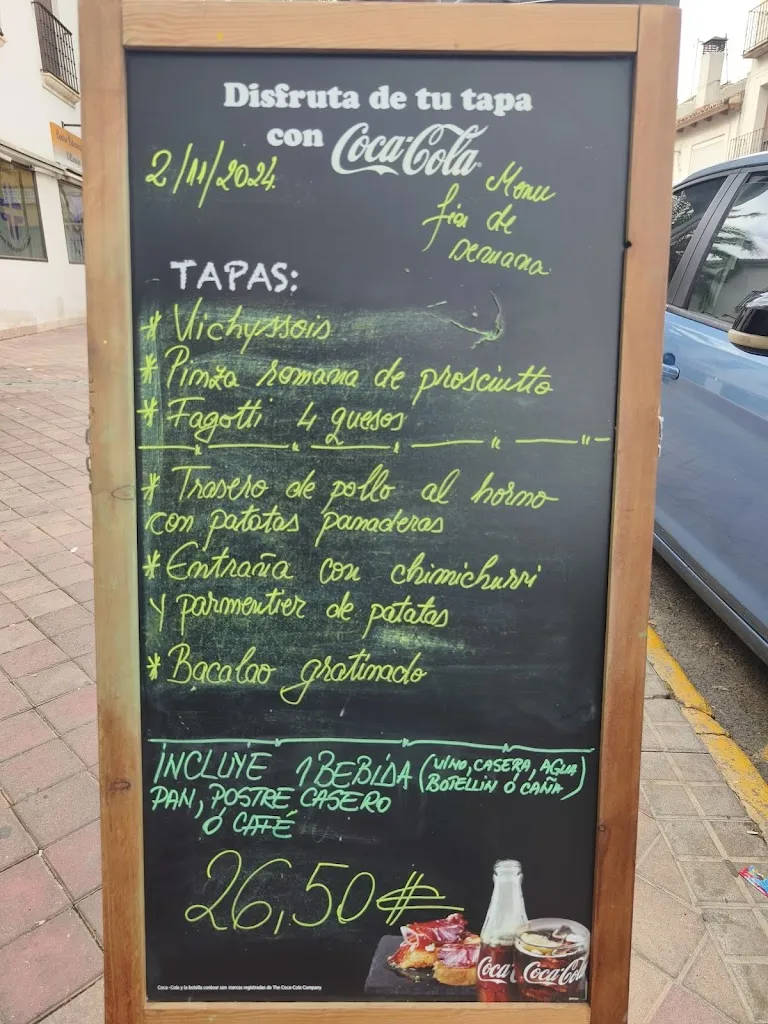 Disfruta de tu tapa
con Coca-Cola
2/11/2024
Menu
fin de
semana
TAPAS:
* Vichyssois
* Pinza romana de prosciutto
* Fagotti 4 quesos
* Trasero de pollo al horno
con patatas panaderas
* Entraña con chimichurri
y parmentier de patatas
* Bacalao gratinado
INCLUYE 1 BEBIDA (VINO, CASERA, AGUA
BOTELLIN Ó CAÑA)
PAN, POSTRE CASERO
Ó CAFÉ
26,50€
Coca-Cola Coca-Cola
Coca-Cola y la botella contour son marcas registradas de The Coca-Cola Company